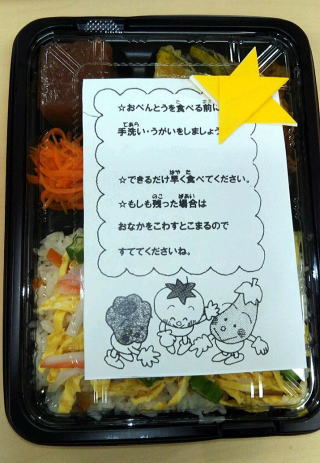 ☆おべんとうを食べる前に
手洗い・うがいをしましょう
☆できるだけ早く食べてください。
☆もしも残った場合は
おなかをこわすとこまるので
すててくださいね。